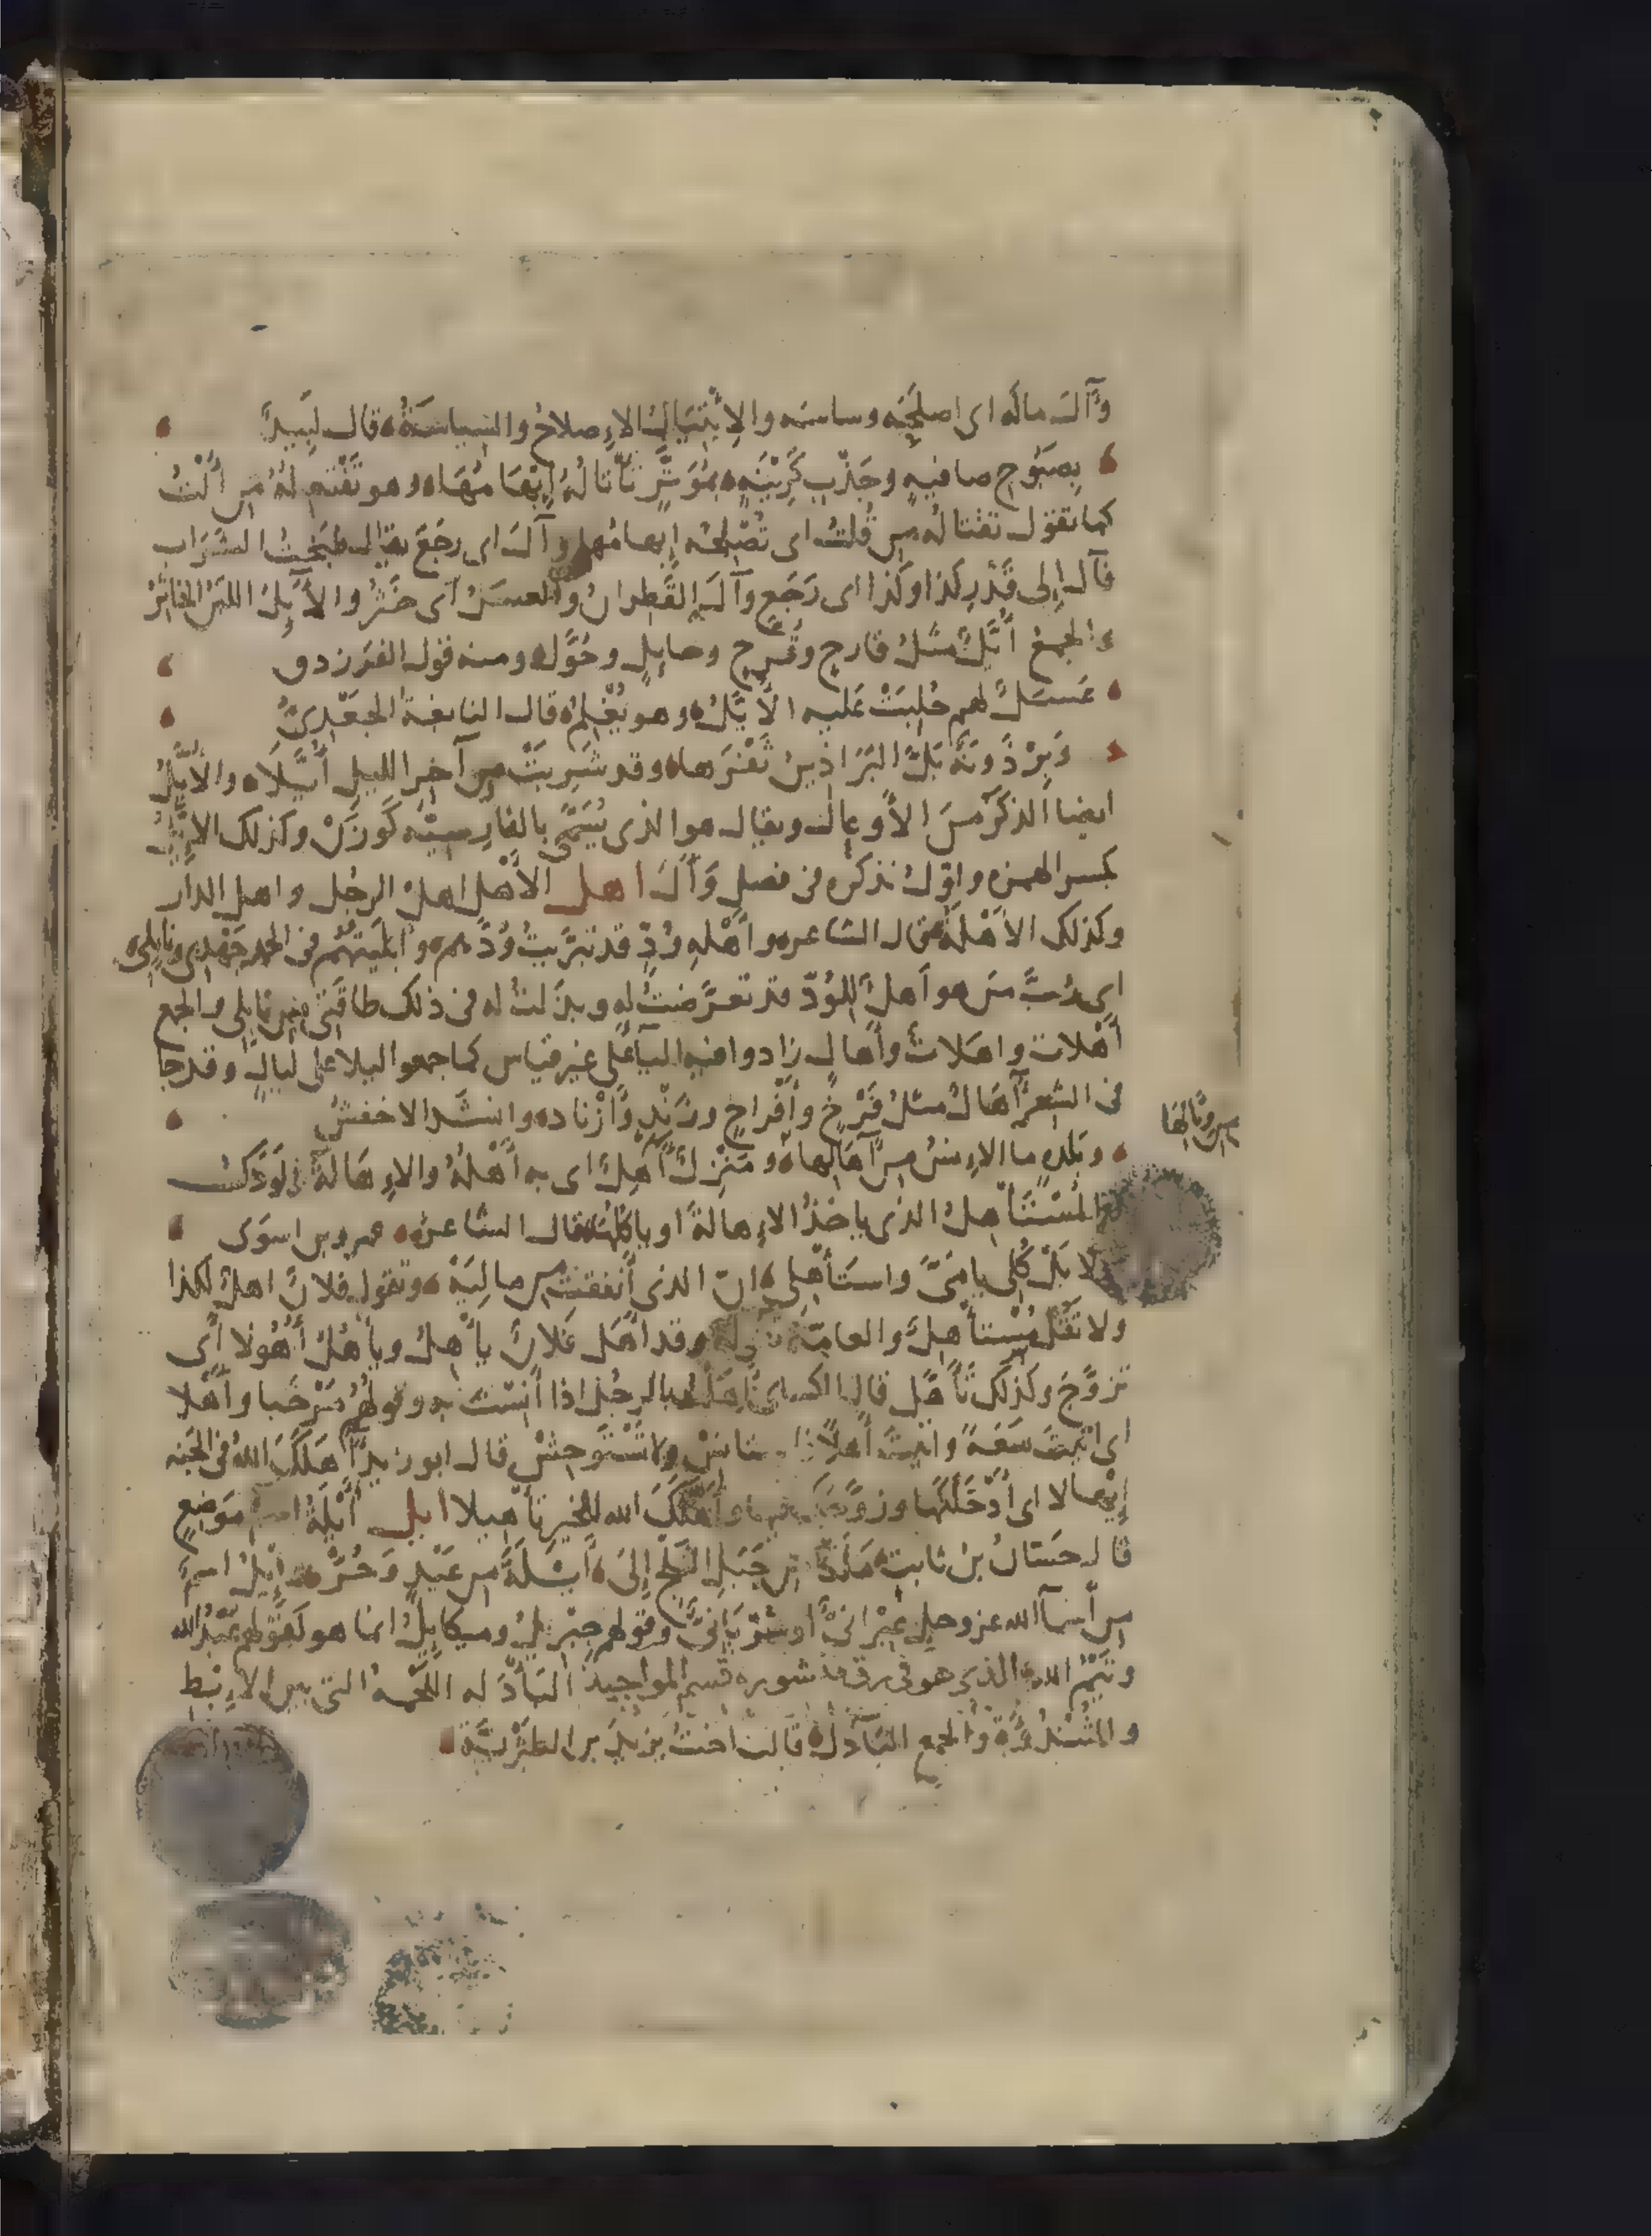 وَآلَ مالَه اى اصلَحَه وساسَه والاِئْتِيَالُ الاِصلاحُ والسِّياسَةُ قال لَبِيدٌ
بِصَبُوحِ صافيةٍ وجَذْبِ كَرِينَةٍ بمُوَتَّرٍ تَأْتَالُهُ إِبْهَامُهَا وهو تَفْتَعِلهُ من أُلْتُ
كما تقول تقتالُه من قُلتُ اى تُصْلِحُه إبهامُها وآلَ اى رجَعَ يقال طبختُ الشرَاب
فآل إلى قَدْرِ كذا وكذا اى رَجَع وآلَ القَطِرانُ والعسَلُ اى خثَرَ والأَيِّلُ اللبَنُ الخاثرُ
والجمعُ أُيَّلٌ مثلُ قارحٍ وقُرَّحٍ وحايلٍ وحُوَّلٍ ومنه قول الفرزدق
عَسَلٌ لهم حُلِبَتْ عَليه الأُيَّلُ وهو يُغْلِمُ قال النابغةُ الجَعْدِىُّ
وَبِرْذَوْنَةٌ بَلَّ البَرَاذِينُ ثَفْرَها وقد شَرِبَتْ من آخِرِ الليلِ أُيَّلاَ والأُيَّلُ
ايضا الذكَرُ منَ الأَوعالِ ويقال هو الذى يُسَمَّى بالفارِسيّه كَوَزَنْ وكذلك الاِيَّلُ
بكسر الهمزه واوّلُ نذكره فى فصل وَأَلَ اهل الأهْلُ اهلُ الرجُل واهل الدار
وكذلك الأهْلَةُ قال الشاعر وأَهْلةِ وُدٍّ قد تبرَّيتُ وُدَّهم وأبلَيتُهُم فى الحمدِ جَهْدِى ونايلى
اى رُبَّ من هو أهلٌ للوُدّ قد تعرَّضتُ له وبذلتُ له فى ذلك طاقَتى من نايلى والجمع
أهْلات واهَلاتٌ وأهالٍ زادوا فيه اليآ على غير قياس كما جمعوا ليلا على ليالٍ وقد جا
فى الشعر آهَالٌ مثلُ فَرْخٍ وأفْراخٍ وزَنْدٍ وأزْناد وانشد الاخفشُ
وبَلدةٍ ما الاِنسُ من آهَالِها ومَنْزِلٌ آهِلٌ اى به أَهْلُهُ والاِهَالةُ الوَدَكُ
والمُسْتَأْهِلُ الذى ياخذُ الاِهالةَ او ياكُلُها قال الشاعر عمرو بن اسوَى
لا بَلْ كُلى يا مَىَّ واستَأهِلى إنّ الذى أنفقتُ من مالِيَهْ وتقول فلانٌ اهلٌ لكذا
ولا تقُلْ مُسْتأهِلٌ والعامّة وقد أهَلَ فلانٌ يأهِلُ ويأهُلُ أُهُولا أى
تزوَّجَ وكذلك تَأَهَّل قال الكساى أهِلتُ بالرجُل اذا أنِسْتَ به وقولهُم مَرْحَبا وأهْلا
اى اتيتَ سَعَةً واتيتَ أهلاً ولا تَسْتَوحِشْ قال ابو زيد آهَلَكَ اللهُ فى الجَنه
إيهالا اى أدْخَلَكَها وزوَّجَكَ فيها وأهَّلَكَ الله للخيرِ تأهيلا ابل أَيْلَةُ اسم مَوضِعٍ
قال حسّانُ بنُ ثابت مَلَكَا من جَبَلِ الثَّلْجِ إلى أَيْلَةَ من عَبْدٍ وحُرّ وإِيلُ اسمٌ
من أسمآ الله عز وجل عِبْرانىٌّ أو سُرْيَانىٌّ وقولهم جِبْرِيلُ وميكاييلُ انما هو كقولهم عَبْدُ الله
وتَيْمُ الله البَأْدَلَه اللَحْمَهُ التى بين الاِبْطِ
والثُّنْدُوَةِ والجمع البَآدِلُ قالت اختُ يزيدَ بن الطَثْرِيّة
من آهالِهَا